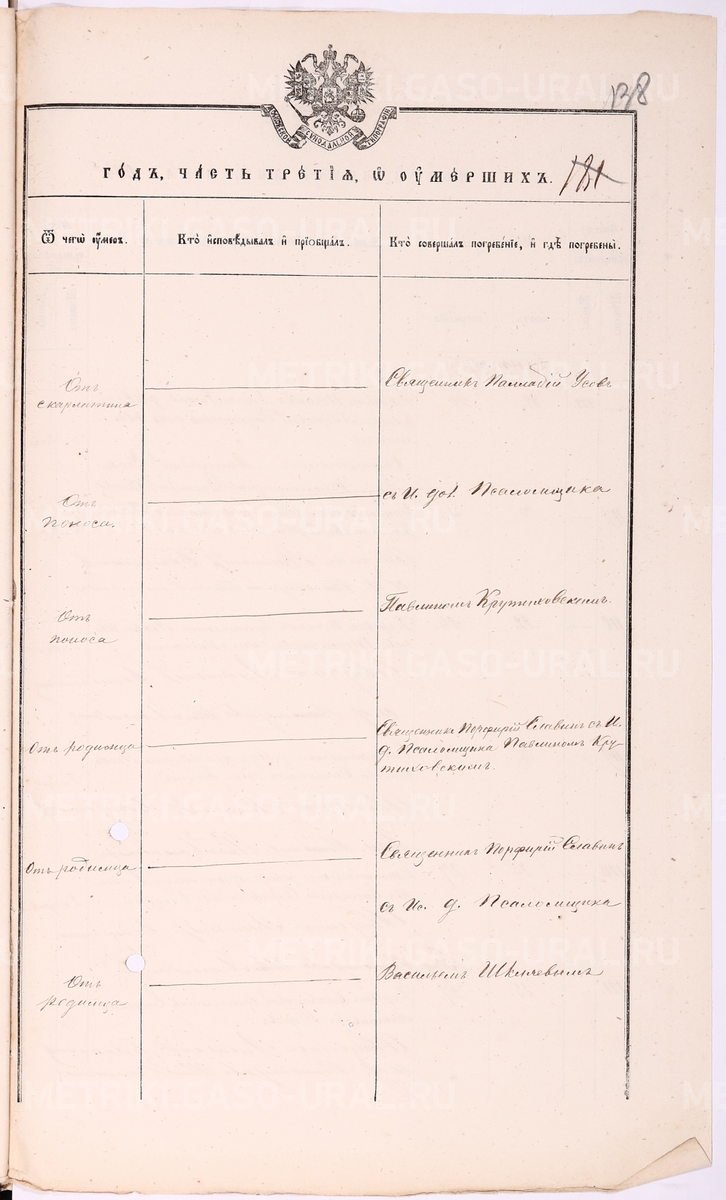 138
МОСКОВСКОЙ СѴНОДАЛЬНОЙ ТИПОГРАФІИ
ГО́ДЪ, ЧА́СТЬ ТРЕ́ТІѦ, Ѡ ОУМЕ́РШИХЪ.
181
Ѿ чегѡ̀ ᲂу҆́меръ.
Кто̀ и҆сповѣ́дывалъ и҆ прїѡбща́лъ.
Кто̀ соверша́лъ погребе́нїе, и҆ гдѣ̀ погребены̀.
Отъ
скарлатина
Священникъ Палладій Усовъ
Отъ
поноса.
съ И. до. Псаломщика
Отъ
поноса
Павлиномъ Крутиховскимъ.
Отъ родимца
Священникъ Порфирій Славинъ съ И.
д. Псаломщика Павлиномъ Кру-
тиховскимъ.
Отъ родимца
Священникъ Порфирій Славинъ
съ Ис. д. Псаломщика
Отъ
родимца
Васильемъ
METRIKI.GASO-URAL.RU